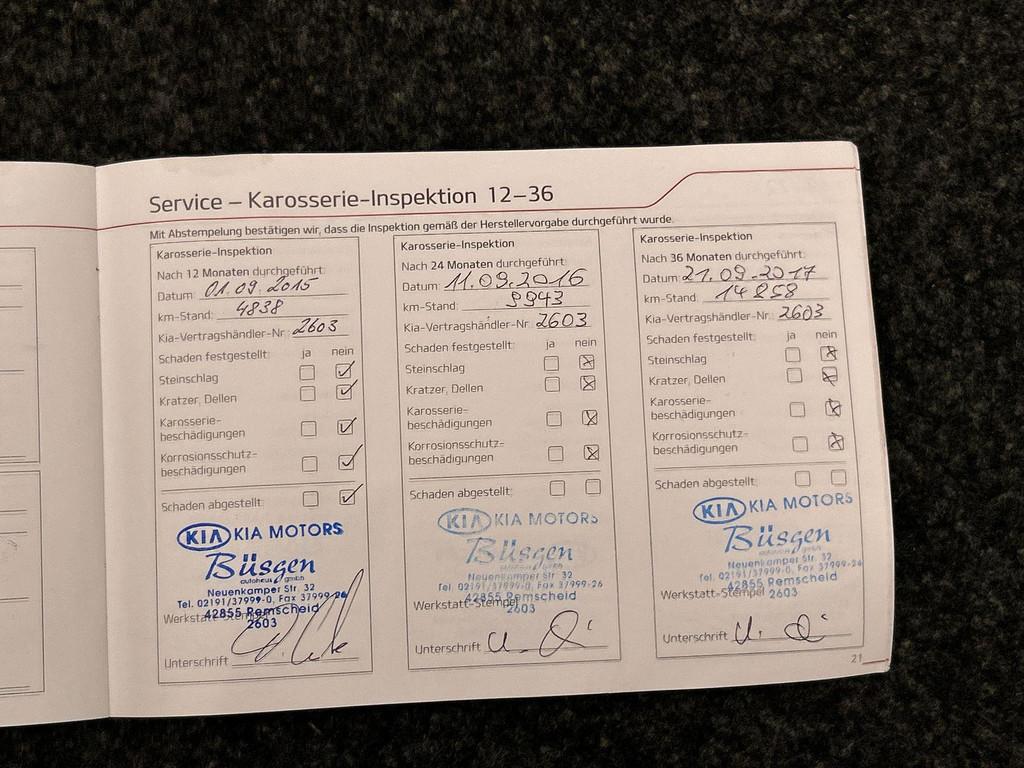 Service – Karosserie-Inspektion 12–36
Mit Abstempelung bestätigen wir, dass die Inspektion gemäß der Herstellervorgabe durchgeführt wurde.
Karosserie-Inspektion
Nach 12 Monaten durchgeführt:
Datum: 01.09.2015
km-Stand: 4838
Kia-Vertragshändler-Nr.: 2603
Schaden festgestellt: ja nein
Steinschlag
Kratzer, Dellen
Karosserie-
beschädigungen
Korrosionsschutz-
beschädigungen
Schaden abgestellt:
KIA KIA MOTORS
Büsgen
autohaus gmbh
Neuenkamper Str. 32
Tel. 02191/37999-0, Fax 37999-26
42855 Remscheid
Werkstatt-Stempel
2603
Unterschrift
Karosserie-Inspektion
Nach 24 Monaten durchgeführt:
Datum: 11.09.2016
km-Stand: 9943
Kia-Vertragshändler-Nr.: 2603
Schaden festgestellt: ja nein
Steinschlag
Kratzer, Dellen
Karosserie-
beschädigungen
Korrosionsschutz-
beschädigungen
Schaden abgestellt:
KIA KIA MOTORS
Büsgen
Neuenkamper Str. 32
Tel. 02191/37999-0, Fax 37999-26
42855 Remscheid
Werkstatt-Stempel
2603
Unterschrift
Karosserie-Inspektion
Nach 36 Monaten durchgeführt:
Datum: 21.09.2017
km-Stand: 14858
Kia-Vertragshändler-Nr.: 2603
Schaden festgestellt: ja nein
Steinschlag
Kratzer, Dellen
Karosserie-
beschädigungen
Korrosionsschutz-
beschädigungen
Schaden abgestellt:
KIA KIA MOTORS
Büsgen
autohaus gmbh
Neuenkamper Str. 32
Tel. 02191/37999-0, Fax 37999-26
42855 Remscheid
Werkstatt-Stempel 2603
Unterschrift
21